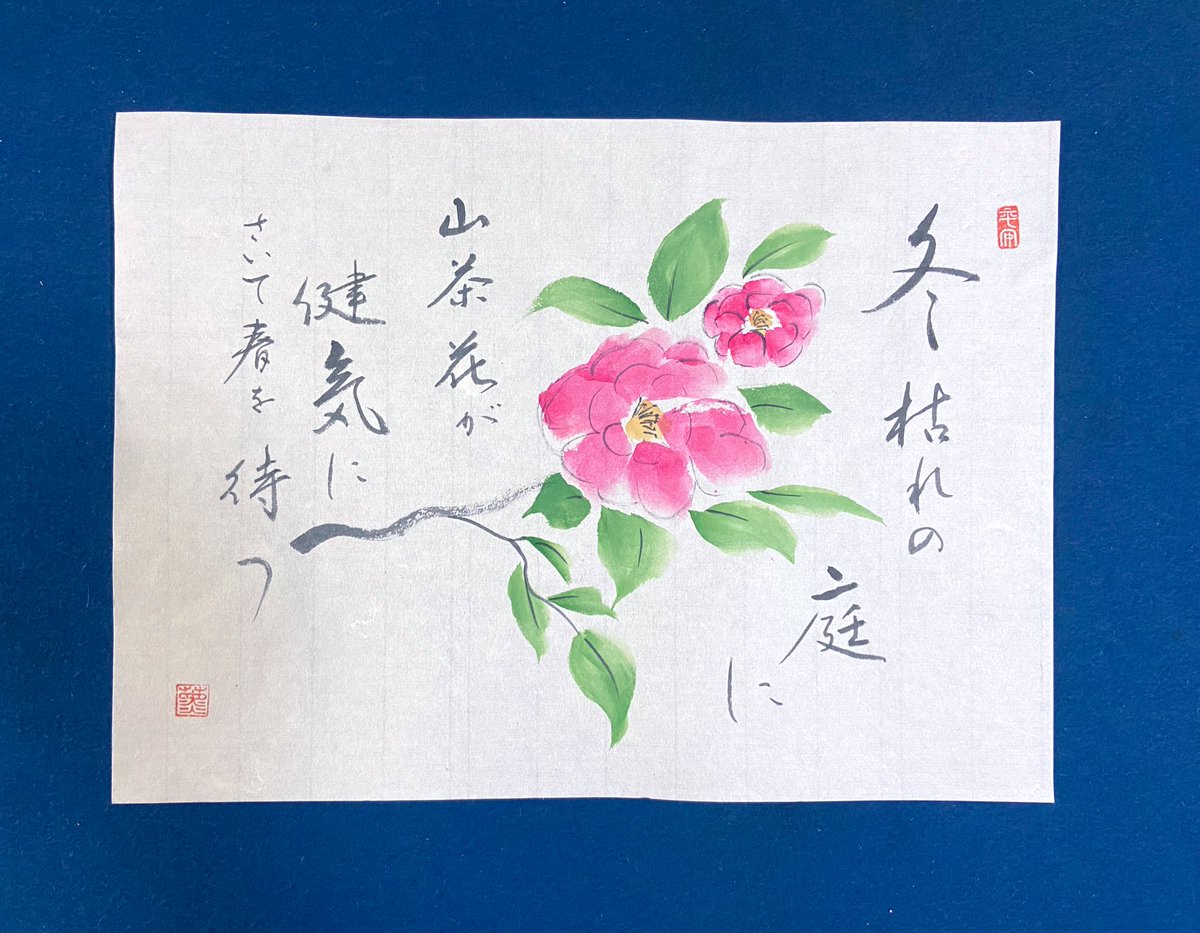 冬枯れの
庭
に
山茶花が
健気に
さいて春を待つ